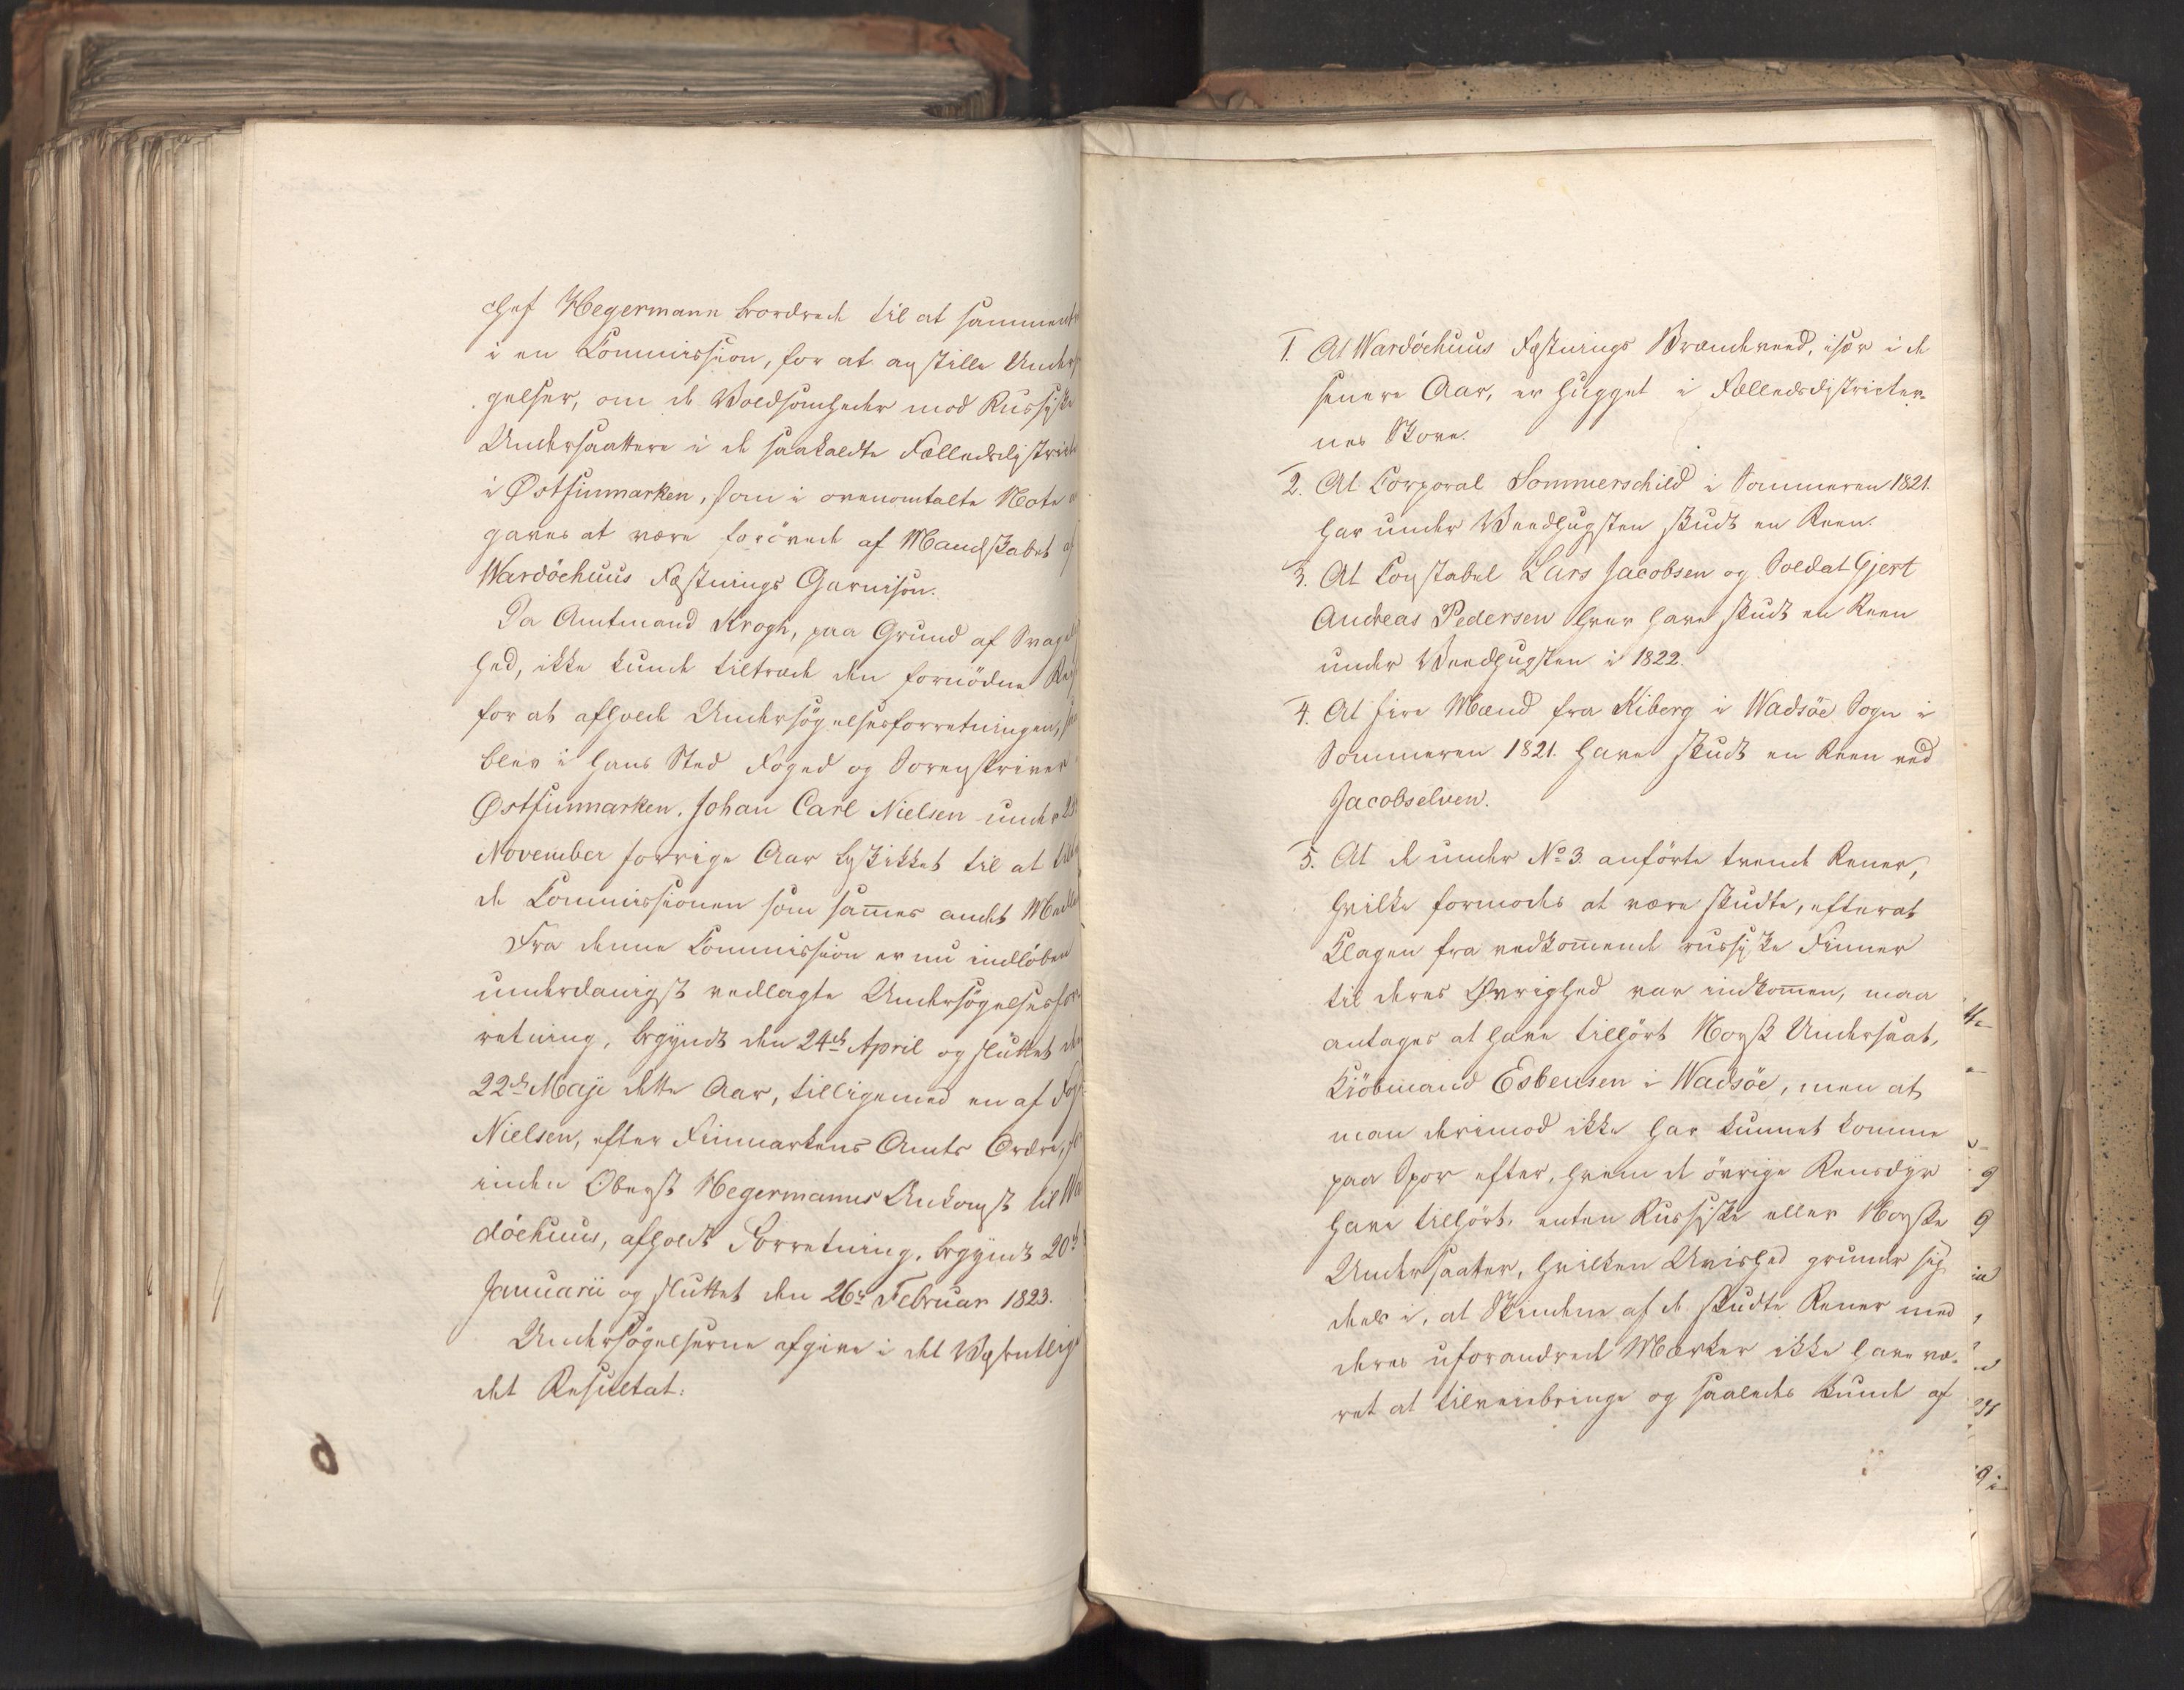 chef Hegermann beordrede til at sammen
i en Commission, for at anstille Under
gelser, om de Voldsomheder mod Russiske
Undersaattere i de saakaldte Fælledsdistri
i Østfinmarken, som i ovenomtalte Note
gaves at være forövede af Mandskabet af
Wardöehuus Fæstnings Garnison.
Da Amtmand Krogh, paa Grund af Svage
hed, ikke kunde tiltræde den fornödne
for at afholde Undersögelsesforretningen,
blev i hans Sted Foged og Sorenskriver
Østfinmarken, Johan Carl Nielsen under
November forrige Aar beskikket til at til
de Commissionen som sam̄es andet Medl
Fra denne Commission er nu indlöben
underdanigst vedlagte Undersögelsesfor
retning, begyndt den 24de April og sluttet
22de Maji dette Aar, tilligemed en af Fog
Nielsen, efter Finmarkens Amts Ordre,
inden Oberst Hegermanns Ankomst til Wa
döehuus, afholdt Forretning, begyndt 20de
Januarii og sluttet den 26de Februar 1823.
Undersögelserne afgive i det Væsentlige
det Resultat:
1. At Wardöehuus Fæstnings Brændeveed, især i de
senere Aar, er hugget i Fælledsdistricter-
nes Skove.
2. At Corporal Sommerschild i Sommeren 1821.
har under Veedhugsten skudt en Reen.
3. At Constabel Lars Jacobsen og Soldat Gjert
Andreas Pedersen hver have skudt en Reen
under Veedhugsten i 1822.
4. At fire Mænd fra Kiberg i Wadsöe Sogn i
Sommeren 1821. have skudt en Reen ved
Jacobselven.
5. At de under No 3 anförte tvende Rener,
hvilke formodes at være skudte, efterat
Klagen fra vedkom̄ende russiske Finner
til deres Øvrighed var indkom̄en, maa
antages at have tilhört Norsk Undersaat,
Kiöbmand Esbensen i Wadsöe, men at
man derimod ikke har kunnet komme
paa Spor efter, hvem de övrige Rensdyr
have tilhört, enten Russiske eller Norske
Undersaatter, hvilken Uvished grunder sig
deels i, at Skindene af de skudte Rener med
deres uforandrede Mærker ikke have væ-
ret at tilveiebringe og saaledes kunde af